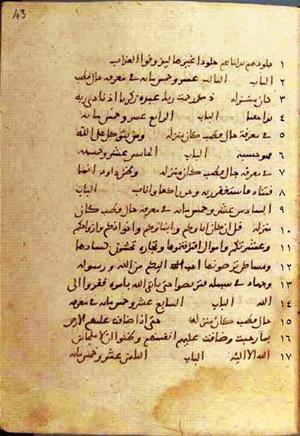 43
١ جلودهم بدلناهم جلودا غيرها ليذوقوا العذاب
٢ الباب الثالث عشر وخمس مائة في معرفة حال قطب
٣ كان منزله ذكر رحمت ربك عبده زكريا اذ نادى ربه
٤ نداء خفيا الباب الرابع عشر وخمس مائة
٥ في معرفة حال قطب كان منزله ومن يتوكل على الله
٦ فهو حسبه الباب الخامس عشر وخمسمائة
٧ في معرفة حال قطب كان منزله وظن داود انما
٨ فتناه فاستغفر ربه وخر راكعا واناب الباب
٩ السادس عشر وخمس مائة في معرفة حال قطب كان
١٠ منزله قل ان كان اباؤكم وابناؤكم واخوانكم وازواجكم
١١ وعشيرتكم واموال اقترفتموها وتجارة تخشون كسادها
١٢ ومساكن ترضونها احب اليكم من الله ورسوله
١٣ وجهاد في سبيله فتربصوا حتى ياتي الله بامره ففروا الى
١٤ الله الباب السابع عشر وخمس مائة في معرفة
١٥ حال قطب كان منزله حتى اذا ضاقت عليهم الارض
١٦ بما رحبت وضاقت عليهم انفسهم وظنوا ان لا ملجأ من
١٧ الله الا اليه الباب الثامن عشر وخمس مائة